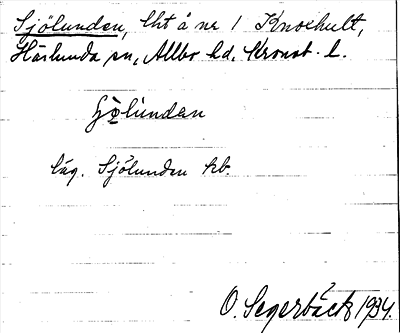 Sjölunden, lht å nr 1 Knoxhult,
Härlunda sn, Allbo hd, Kronob. l.
sjö̀lúndan
läg. Sjölunden kb.
O. Segerbäck 1934.